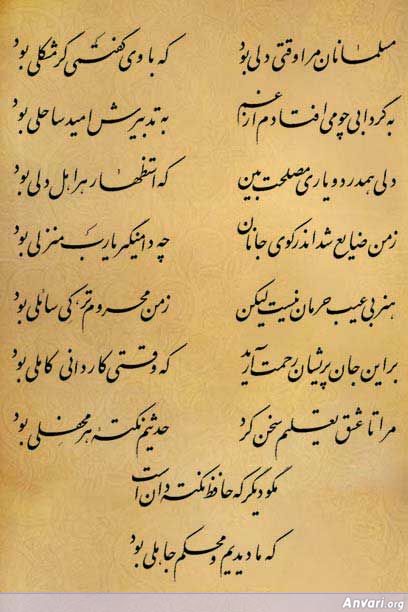 مسلمانان مرا وقتی دلی بود که با وی گفتمی گر مشکلی بود
به گردابی چو می افتادم از غم به تدبیرش امید ساحلی بود
دلی همدرد و یاری مصلحت بین که استظهار هر اهل دلی بود
زمن ضایع شد اندر کوی جانان چه دامنگیر یارب منزلی بود
هنر بی عیب حرمان نیست لیکن زمن محروم تر کی سائلی بود
بر این جان پریشان رحمت آرید که وقتی کاردانی کاملی بود
مرا تا عشق تعلیم سخن کرد حدیثم نکته هر محفلی بود
مگو دیگر که حافظ نکته دان است
که ما دیدیم و محکم جاهلی بود
Anvari.org